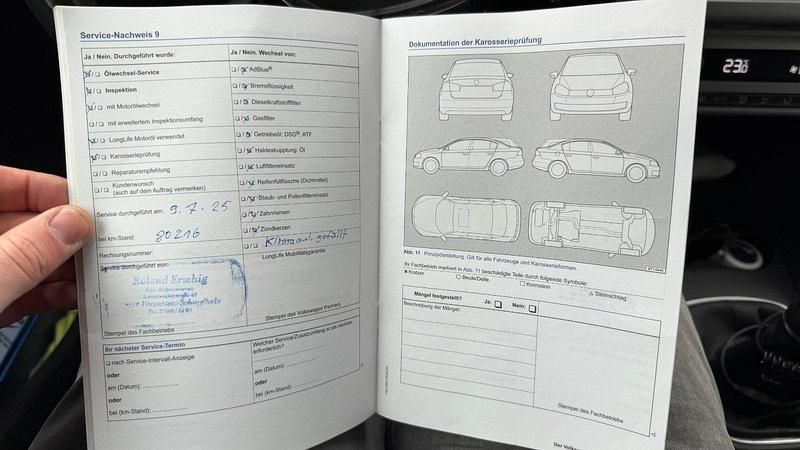 Service-Nachweis 9
Ja / Nein. Durchgeführt wurde:
Ölwechsel-Service
Inspektion
mit Motorölwechsel
mit erweitertem Inspektionsumfang
LongLife Motoröl verwendet
Karosserieprüfung
Reparaturempfehlung
Kundenwunsch
(auch auf dem Auftrag vermerken)
Service durchgeführt am: 9.7.25
bei km-Stand: 80216
Rechnungsnummer:
Service durchgeführt von:
Roland Erschig
Stempel des Fachbetriebs
Ja / Nein. Wechsel von:
AdBlue®
Bremsflüssigkeit
Dieselkraftstofffilter
Gasfilter
Getriebeöl: DSG®, ATF
Haldexkupplung: Öl
Luftfiltereinsatz
Reifenfüllflasche (Dichtmittel)
Staub- und Pollenfiltereinsatz
Zahnriemen
Zündkerzen
Klimaanl. gefüllt
LongLife Mobilitätsgarantie:
Stempel des Volkswagen Partners
Ihr nächster Service-Termin
nach Service-Intervall-Anzeige
oder
am (Datum):
oder
bei (km-Stand):
Welcher Service/Zusatzumfang ist als nächster
erforderlich?
am (Datum):
oder
bei (km-Stand):
Dokumentation der Karosserieprüfung
Abb. 11 Prinzipdarstellung. Gilt für alle Fahrzeuge und Karosserieformen.
Ihr Fachbetrieb markiert in Abb. 11 beschädigte Teile durch folgende Symbole:
× Kratzer
○ Beule/Delle
□ Korrosion
△ Steinschlag
Mängel festgestellt? Ja: Nein:
Beschreibung der Mängel:
Stempel des Fachbetriebs
23.0